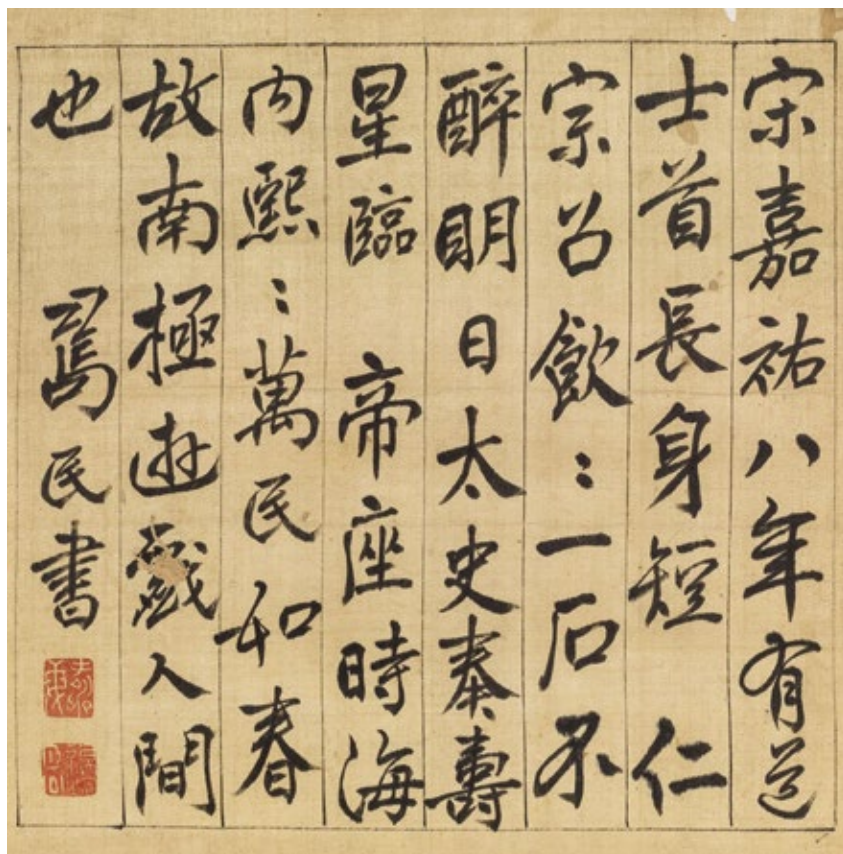 宋嘉祐八年有道
士首長身短 仁
宗召飲：一石不
醉明日太史奏壽
星臨 帝座時海
内熙：萬民和春
故南極遊戲人間
也 萬民書